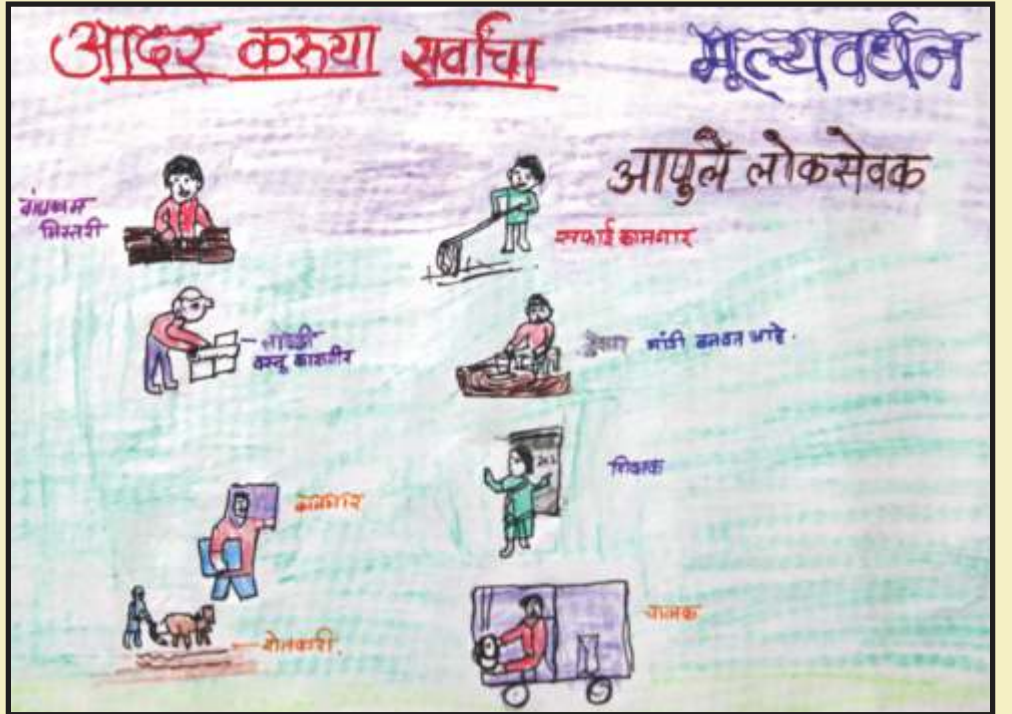 आदर करूया सर्वांचा
मूल्यवर्धन
आपुले लोकसेवक
बांधकाम
मिस्तरी
सफाई कामगार
लाकडी
वस्तू कारागीर
मांडी बनवत आहे.
शिक्षक
कामगार
चालक
शेतकरी.